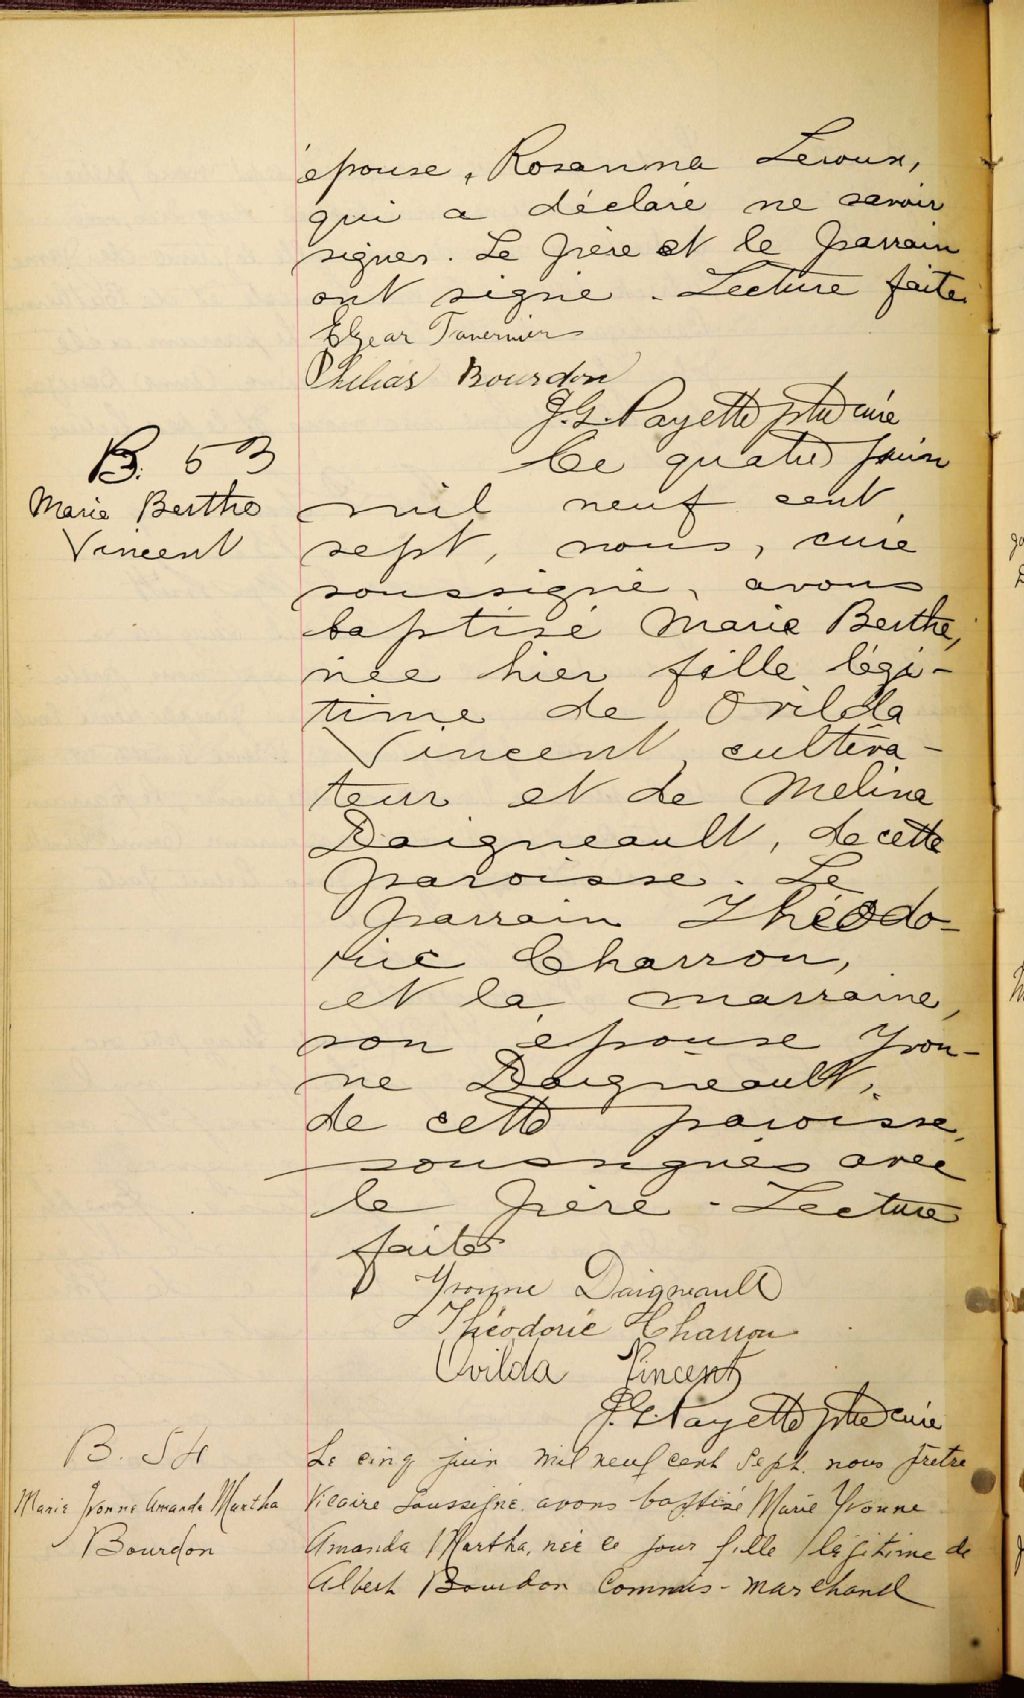 épouse, Rosanna Leroux,
qui a déclaré ne savoir
signer. Le père et le parrain
ont signé. Lecture faite.
Elzear Tavernier
Philias Bourdon
J. G. Payette ptre curé
B. 53
Marie Berthe
Vincent
Ce quatre juin
mil neuf cent
sept, nous, curé
soussigné, avons
baptisé Marie Berthe,
née hier fille légi-
time de Ovilda
Vincent, cultiva-
teur et de Melina
Daigneault, de cette
paroisse. Le
parrain Théodo-
ric Charron,
et la marraine,
son épouse Yvon-
ne Daigneault,
de cette paroisse,
soussignés avec
le père - Lecture
faite
Yvonne Daigneault
Théodoric Charron
Ovilda Vincent
J. G. Payette ptre curé
B. 54
Marie Yvonne Amanda Martha
Bourdon
Le cinq juin mil neuf cent sept. nous prêtre
Vicaire soussigné avons baptisé Marie Yvonne
Amanda Martha, née ce jour fille légitime de
Albert Bourdon Commis-marchand